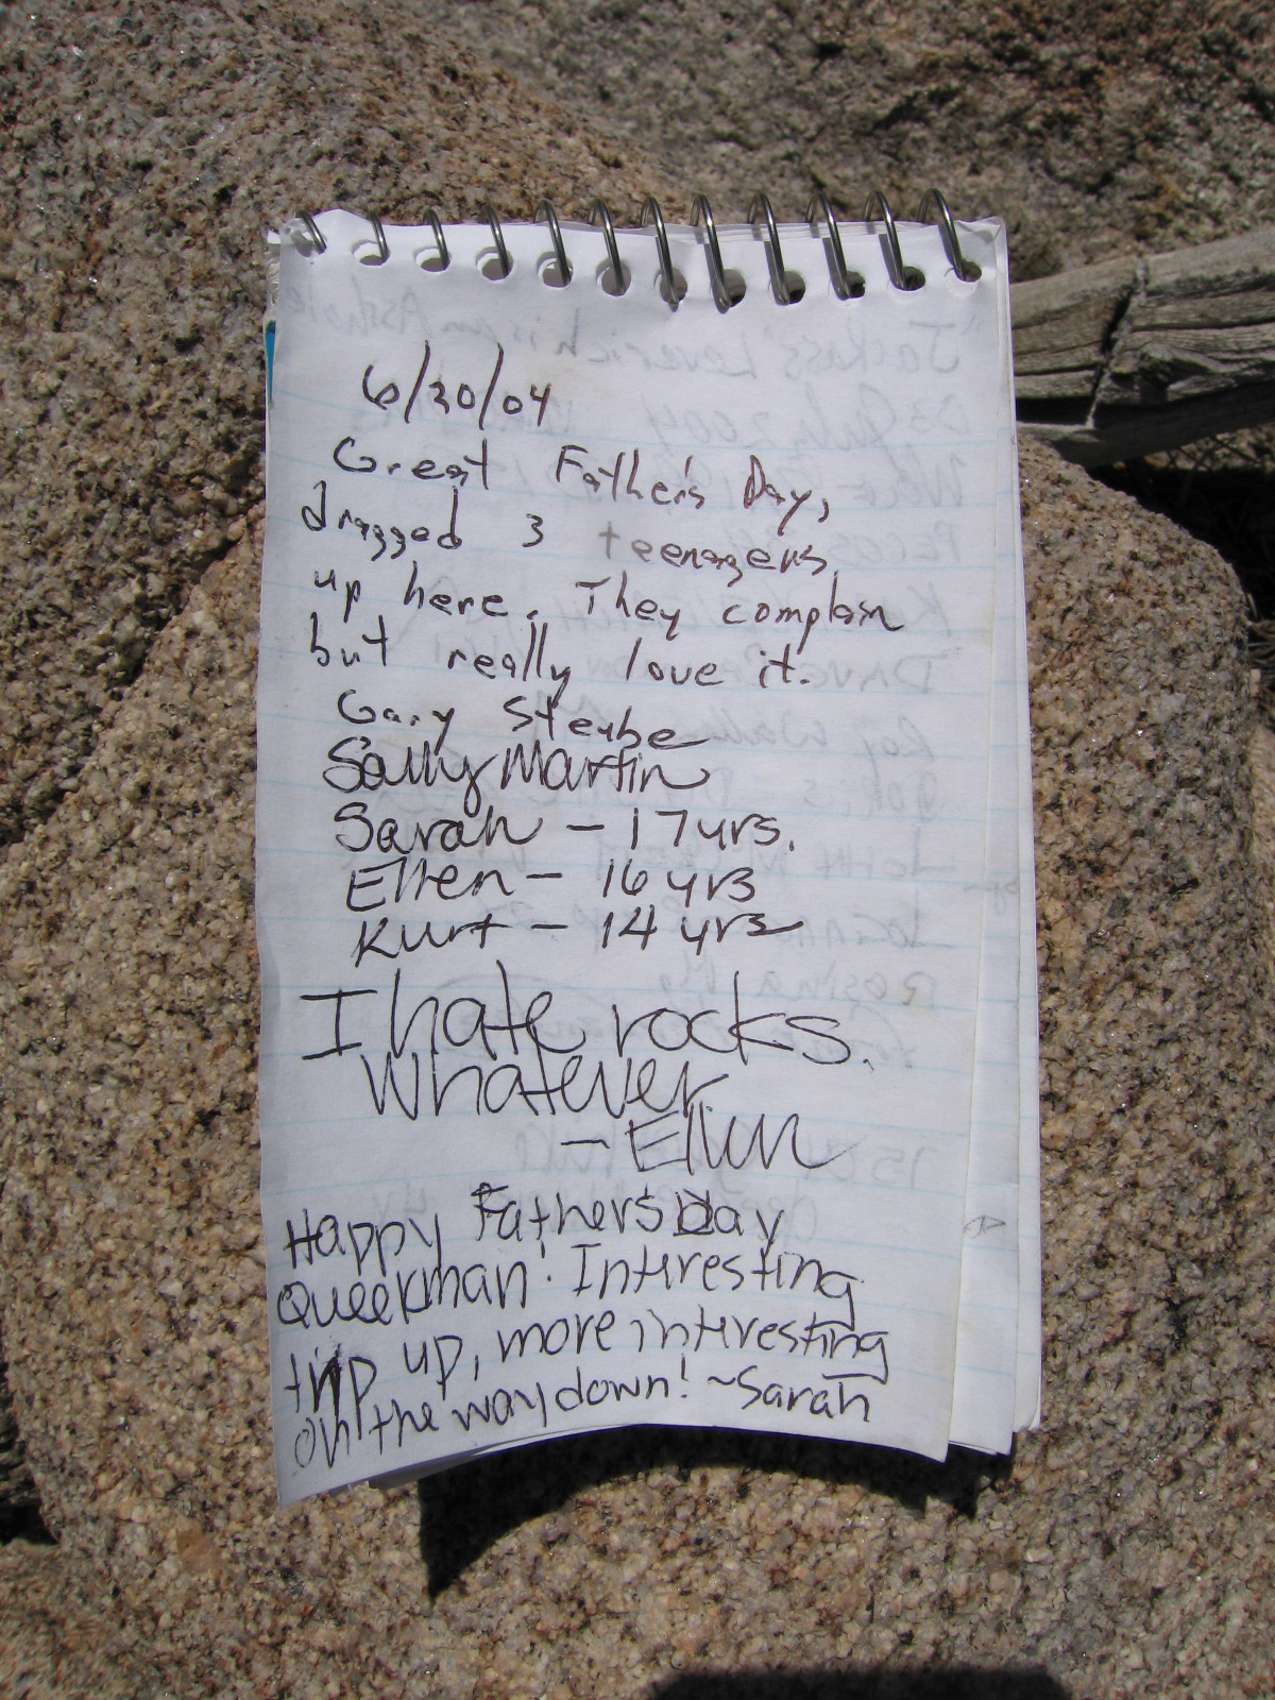 6/20/04
Great Father's Day,
dragged 3 teenagers
up here. They complain
but really love it.
Gary Steube
Sally Martin
Sarah - 17 yrs.
Ellen - 16 yrs
Kurt - 14 yrs
I hate rocks.
Whatever.
- Ellen
Happy Father's Day
Queekman! Interesting
trip up, more interesting
on the way down! ~Sarah